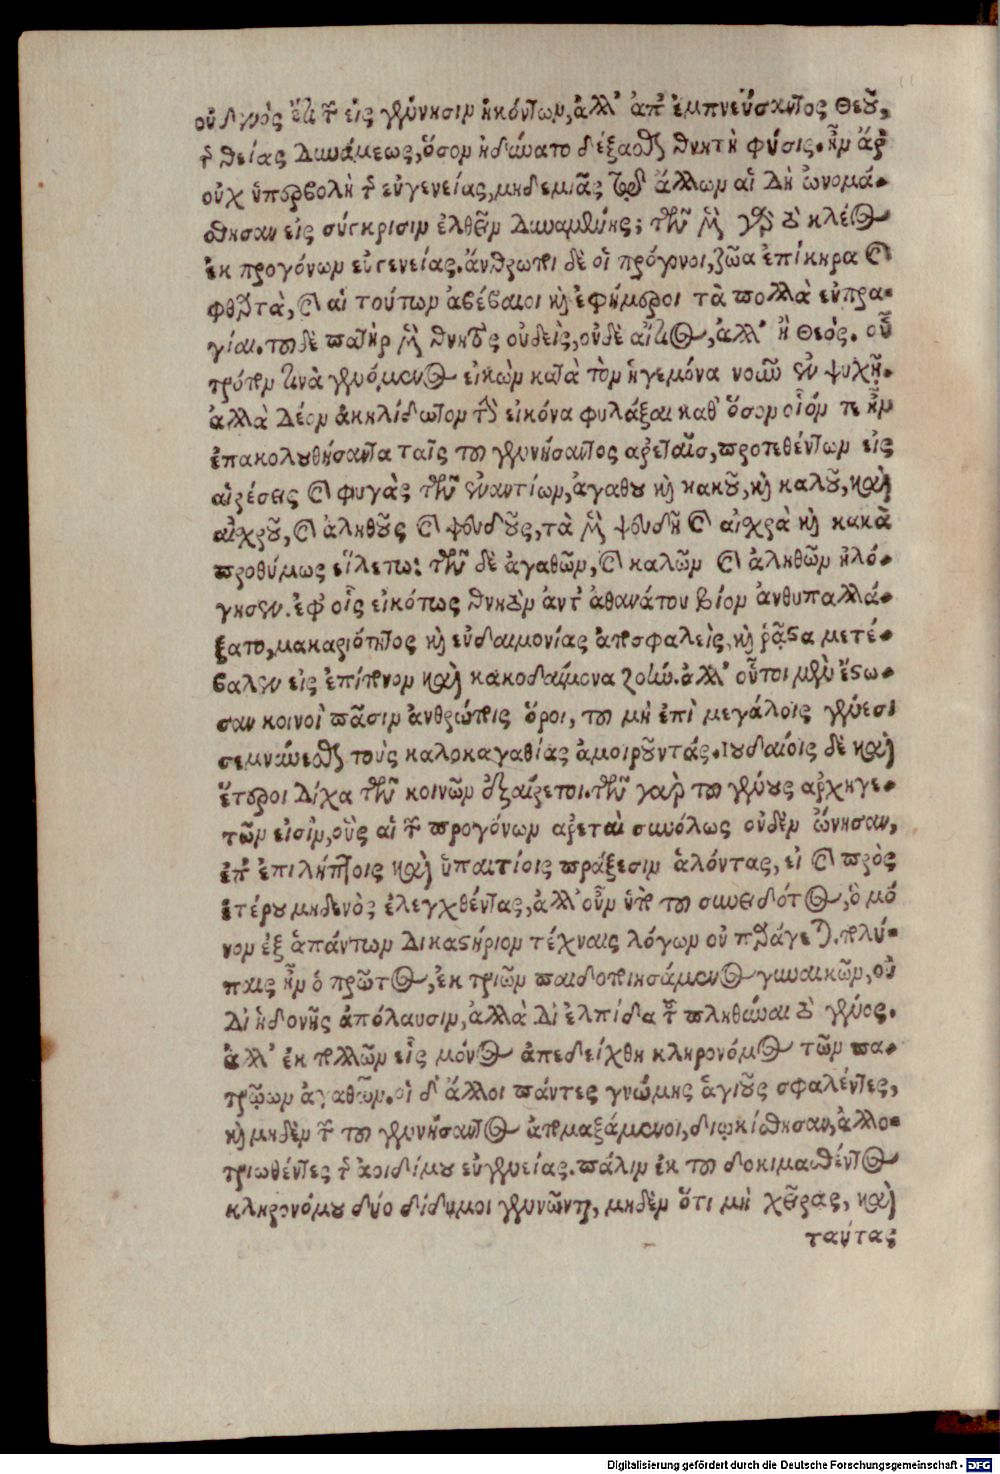 οὐδενὸς ἔτι τῶν εἰς γένησιν ἡκόντων, ἀλλ' ἀπ' ἐμπνεύσαντος Θεοῦ,
τῆς θείας δυνάμεως, ὅσον ἠδύνατο δέξασθαι θνητὴ φύσις. ἦν ἄρ'
οὐχ ὑπερβολὴ τῆς εὐγενείας, μηδεμιᾶς τῶν ἄλλων αἳ δὴ ὠνομά-
σθησαν εἰς σύγκρισιν ἐλθεῖν δυναμένης; τῶν μὲν γὰρ τὸ κλέος
ἐκ προγόνων εὐγενείας. ἄνθρωποι δὲ οἱ πρόγονοι, ζῶα ἐπίκηρα καὶ
φθαρτὰ, καὶ αἱ τούτων ἀβέβαιοι καὶ ἐφήμεροι τὰ πολλὰ εὐπρα-
γίαι. τοῦ δὲ πατὴρ μὲν θνητὸς οὐδεὶς, οὐδὲ αἴτιος, ἀλλ' ἢ Θεὸς. οὗ
τρόπον τινὰ γενόμενος εἰκὼν κατὰ τὸν ἡγεμόνα νοῦν ἐν ψυχῇ.
ἀλλὰ δέον ἀκηλίδωτον τὴν εἰκόνα φυλάξαι καθ' ὅσον οἷόν τε ἦν
ἐπακολουθήσαντα ταῖς τοῦ γεννήσαντος ἀρεταῖσ, προτεθέντων εἰς
αἱρέσεις καὶ φυγὰς τῶν ἐναντίων, ἀγαθου καὶ κακοῦ, καὶ καλοῦ, καὶ
αἰχροῦ, καὶ ἀληθοῦς καὶ ψευδοῦς, τὰ μὲν ψευδῆ καὶ αἰχρὰ καὶ κακὰ
προθύμως εἵλετο: τῶν δὲ ἀγαθῶν, καὶ καλῶν καὶ ἀληθῶν ἠλό-
γησεν. ἐφ' οἷς εἰκότως θνητὸν ἀντ' ἀθανάτου βίον ἀνθυπαλλά-
ξατο, μακαριότητος καὶ εὐδαιμονίας ἀποσφαλεὶς, καὶ ῥᾷστα μετέ-
βαλεν εἰς ἐπίπονον καὶ κακοδαίμονα ζοὼν. ἀλλ' οὗτοι μὲν ἔστω-
σαν κοινοὶ πᾶσιν ἀνθρώποις ὅροι, τοῦ μὴ ἐπὶ μεγάλοις γένεσι
σεμνύνεσθαι τοὺς καλοκαγαθίας ἀμοιροῦντάς. Ιουδαίοις δὲ καὶ
ἕτεροι δίχα τῶν κοινῶν ἐξαίρετοι. τῶν γαὰρ τοῦ γένους ἀρχηγε-
τῶν εἰσὶν, οὓς αἱ τῶν προγόνων ἀρεταὶ συνόλως οὐδὲν ὤνησαν,
ἐπ' ἐπιλήπτοις καὶ ὑπαιτίοις πράξεσιν ἁλόντας, εἰ καὶ πρὸς
ἑτέρου μηδενὸς ἐλεγχθέντας, ἀλλ' οὖν ὑπὸ τοῦ συνειδότος, ὃ μό
νον ἐξ ἁπάντων δικαστήριον τέχναις λόγων οὐ παράγεται. πολύ-
παις ἦν ὁ πρῶτος, ἐκ τριῶν παιδοποιησάμενος γυναικῶν, οὐ
δι' ἡδονῆς ἀπόλαυσιν, ἀλλὰ δι' ἐλπίδα τοῦ πληθῦναι τὸ γένος.
ἀλλ' ἐκ πολλῶν εἷς μόνος ἀπεδείχθη κληρονόμος τῶν πα-
τρῴων ἀγαθῶν. οἱ δ' ἄλλοι πάντες γνώμης ὑγιοῦς σφαλέντες,
καὶ μηδὲν τῶν τοῦ γεννήσαντος ἀπομαξάμενοι, διῳκίσθησαν, ἀλλο-
τριωθέντες τῆς ἀοιδίμου εὐγενείας. πάλιν ἐκ τοῦ δοκιμασθέντος
κληρονόμου δύο δίδυμοι γεννῶνται, μηδὲν ὅτι μὴ χεῖρας, καὶ
ταύτας
Digitalisierung gefördert durch die Deutsche Forschungsgemeinschaft - DFG